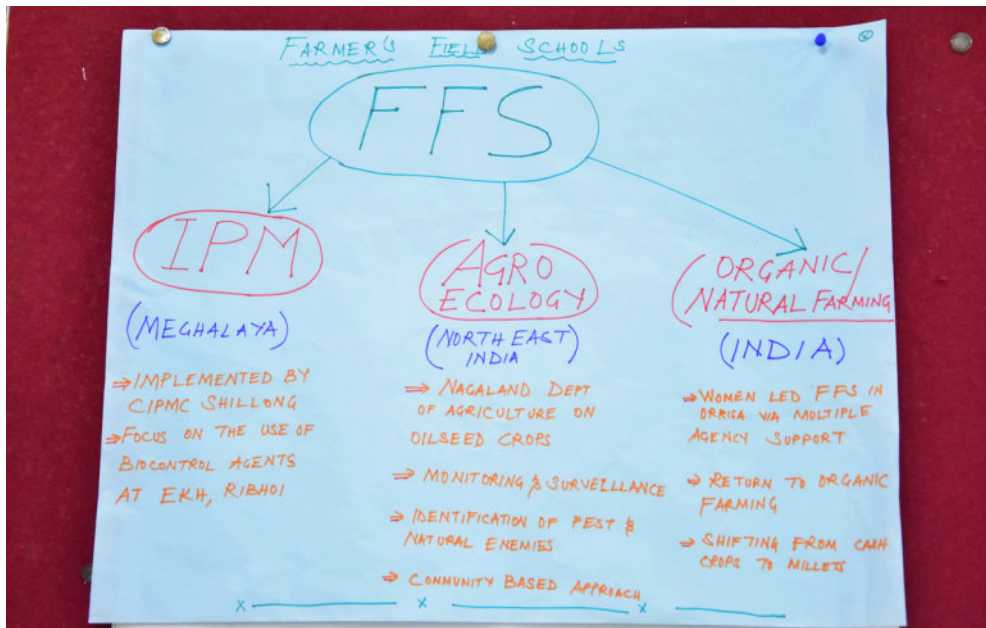 FARMER'S FIELD SCHOOLS
FFS
IPM
(MEGHALAYA)
⇒ IMPLEMENTED BY
CIPMC SHILLONG
⇒ FOCUS ON THE USE OF
BIOCONTROL AGENTS
AT EKH, RIBHOI
AGRO
ECOLOGY
(NORTH EAST
INDIA)
⇒ NAGALAND DEPT
OF AGRICULTURE ON
OILSEED CROPS
⇒ MONITORING & SURVEILLANCE
⇒ IDENTIFICATION OF PEST &
NATURAL ENEMIES
⇒ COMMUNITY BASED APPROACH
ORGANIC/
NATURAL FARMING
(INDIA)
⇒ WOMEN LED FFS IN
ORRISA VIA MULTIPLE
AGENCY SUPPORT
⇒ RETURN TO ORGANIC
FARMING
⇒ SHIFTING FROM CASH
CROPS TO MILLETS